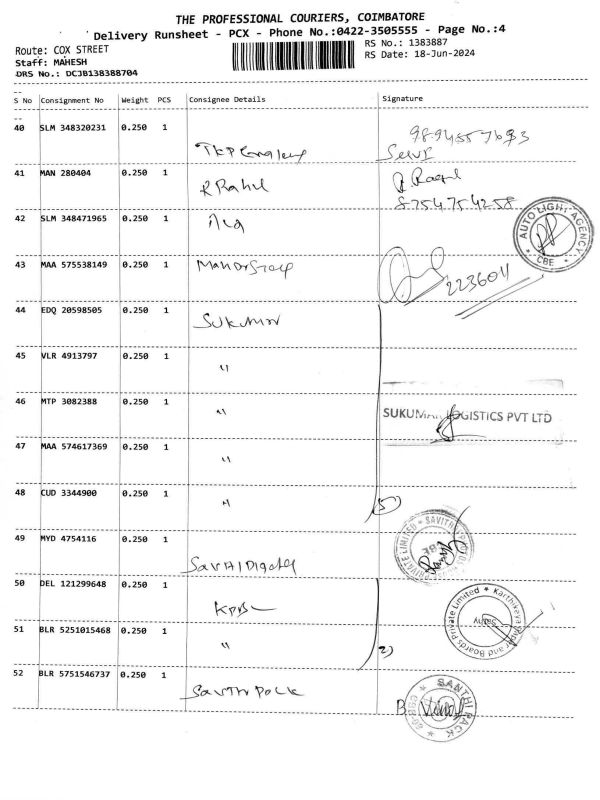 THE PROFESSIONAL COURIERS, COIMBATORE
Delivery Runsheet - PCX - Phone No.:0422-3505555 - Page No.:4
Route: COX STREET
RS No.: 1383887
Staff: MAHESH
RS Date: 18-Jun-2024
DRS No.: DCJB138388704
--
S No Consignment No Weight PCS Consignee Details Signature
--
40 SLM 348320231 0.250 1
Selvi
41 MAN 280404 0.250 1 R Rahul
8754754258
42 SLM 348471965 0.250 1
AUTO LIGHT AGENCY * CBE *
43 MAA 575538149 0.250 1
2236011
44 EDQ 20598505 0.250 1 Sukumar
45 VLR 4913797 0.250 1 "
46 MTP 3082388 0.250 1 "
SUKUMAR LOGISTICS PVT LTD
47 MAA 574617369 0.250 1 "
48 CUD 3344900 0.250 1 "
5)
49 MYD 4754116 0.250 1
PRIVATE LIMITED * SAVITH
50 DEL 121299648 0.250 1
Karthikeya Paper and Boards Private Limited *
51 BLR 5251015468 0.250 1 "
2)
52 BLR 5751546737 0.250 1
* SANTHI PACK *